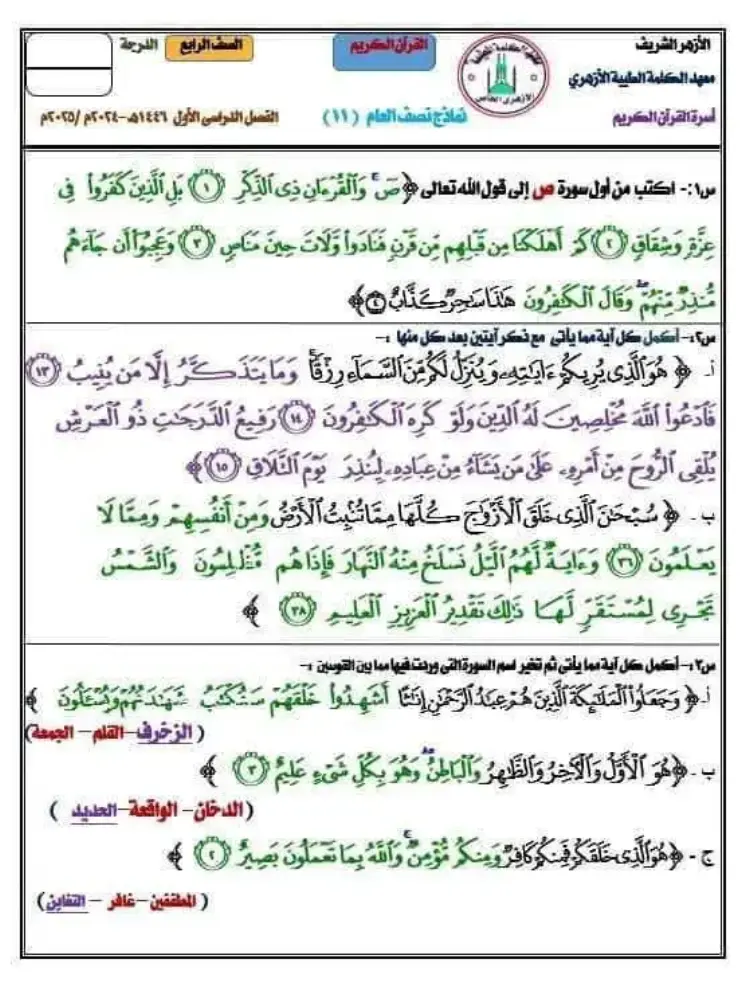 الأزهر الشريف
القرآن الكريم
الصف الرابع
الدرجة
معهد الكلمة الطيبة الأزهري
أسرة القرآن الكريم
نماذج نصف العام (١١)
الفصل الدراسى الأول ١٤٤٦هـ-٢٠٢٤م /٢٠٢٥م
س١:- أكتب من أول سورة ص إلى قول الله تعالى ﴿صٓ وَالْقُرْءَانِ ذِى الذِّكْرِ (١) بَلِ الَّذِينَ كَفَرُوا فِى
عِزَّةٍ وَشِقَاقٍ (٢) كَمْ أَهْلَكْنَا مِن قَبْلِهِم مِّن قَرْنٍ فَنَادَوا وَلَاتَ حِينَ مَنَاصٍ (٣) وَعَجِبُوا أَن جَاءَهُم
مُّنذِرٌ مِّنْهُمْ وَقَالَ الْكَٰفِرُونَ هَٰذَا سَٰحِرٌ كَذَّابٌ (٤)﴾
س٢:- أكمل كل آية مما يأتى مع ذكر آيتين بعد كل منها :-
أ- ﴿ هُوَ الَّذِى يُرِيكُمْ ءَايَٰتِهِ وَيُنَزِّلُ لَكُم مِّنَ السَّمَاءِ رِزْقًا وَمَا يَتَذَكَّرُ إِلَّا مَن يُنِيبُ (١٣)
فَادْعُوا اللَّهَ مُخْلِصِينَ لَهُ الدِّينَ وَلَوْ كَرِهَ الْكَٰفِرُونَ (١٤) رَفِيعُ الدَّرَجَٰتِ ذُو الْعَرْشِ
يُلْقِى الرُّوحَ مِنْ أَمْرِهِ عَلَىٰ مَن يَشَاءُ مِنْ عِبَادِهِ لِيُنذِرَ يَوْمَ التَّلَاقِ (١٥)﴾
ب- ﴿ سُبْحَٰنَ الَّذِى خَلَقَ الْأَزْوَٰجَ كُلَّهَا مِمَّا تُنبِتُ الْأَرْضُ وَمِنْ أَنفُسِهِمْ وَمِمَّا لَا
يَعْلَمُونَ (٣٦) وَءَايَةٌ لَّهُمُ الَّيْلُ نَسْلَخُ مِنْهُ النَّهَارَ فَإِذَا هُم مُّظْلِمُونَ وَالشَّمْسُ
تَجْرِى لِمُسْتَقَرٍّ لَّهَا ذَٰلِكَ تَقْدِيرُ الْعَزِيزِ الْعَلِيمِ (٣٨) ﴾
س٣:- أكمل كل آية مما يأتى ثم تخير اسم السورة التى وردت فيها مما بين القوسين :-
أ- ﴿ وَجَعَلُوا الْمَلَٰئِكَةَ الَّذِينَ هُمْ عِبَٰدُ الرَّحْمَٰنِ إِنَٰثًا أَشَهِدُوا خَلْقَهُمْ سَتُكْتَبُ شَهَٰدَتُهُمْ وَيُسْـَٔلُونَ ﴾
( الزخرف -القلم – الجمعة)
ب- ﴿هُوَ الْأَوَّلُ وَالْآخِرُ وَالظَّٰهِرُ وَالْبَاطِنُ وَهُوَ بِكُلِّ شَىْءٍ عَلِيمٌ (٣) ﴾
(الدخان – الواقعة -الحديد )
ج - ﴿هُوَ الَّذِى خَلَقَكُمْ فَمِنكُمْ كَافِرٌ وَمِنكُم مُّؤْمِنٌ وَاللَّهُ بِمَا تَعْمَلُونَ بَصِيرٌ (٢) ﴾
( المطففين –غافر – التغابن)